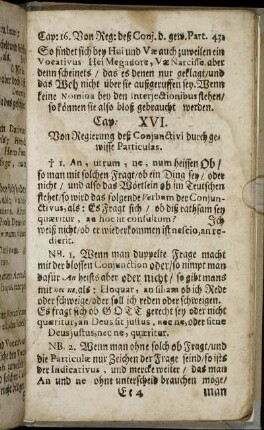 Cap: 16. Von Reg: deß Conj. d. gew. Part. 431
So findet sich bey Hui und Væ auch zuweilen ein
Vocativus Hei Megadore, Væ Narcisse. aber
denn scheinets / das es denen nur geklagt / und
das Weh nicht über sie außgeruffen sey. Wenn
keine Nomina bey den Interjectionibus stehen /
so können sie also bloß gebraucht werden.
Cap: XVI.
Von Regierung deß Conjunctivi durch ge-
wisse Particulas.
† 1. An, utrum, ne, num heissen Ob /
so man mit solchen Fragt / ob ein Ding sey / oder
nicht / und also das Wörtlein ob im Teutschen
stehet / so wird das folgende Verbum der Conjun-
ctivus, als: Es Fragt sich / ob diß rathsam sey
quæritur, an hoc sit consultum? Ich
weiß nicht / ob er wiederkommen ist nescio, an re-
dierit.
NB. 1. Wenn man duppelte Frage macht
mit der blossen Conjunction oder / so nimpt man
dafür An heists aber oder nicht / so gibt mans
mit nec ne. als: Loquar, an sileam ob ich Rede
oder schweige / oder soll ich reden oder schweigen.
Es fragt sich ob GOTT gerecht sey oder nicht
quæritur, an Deus sit justus, nec ne, oder sitne
Deus justus, nec ne, quæritur.
NB. 2. Wenn man ohne solch ob Fragt / und
die Particulæ nur Zeichen der Frage seind / so ists
der Indicativus. und mercke weiter / das man
An und ne ohne unterscheid brauchen möge /
Ee 4 man